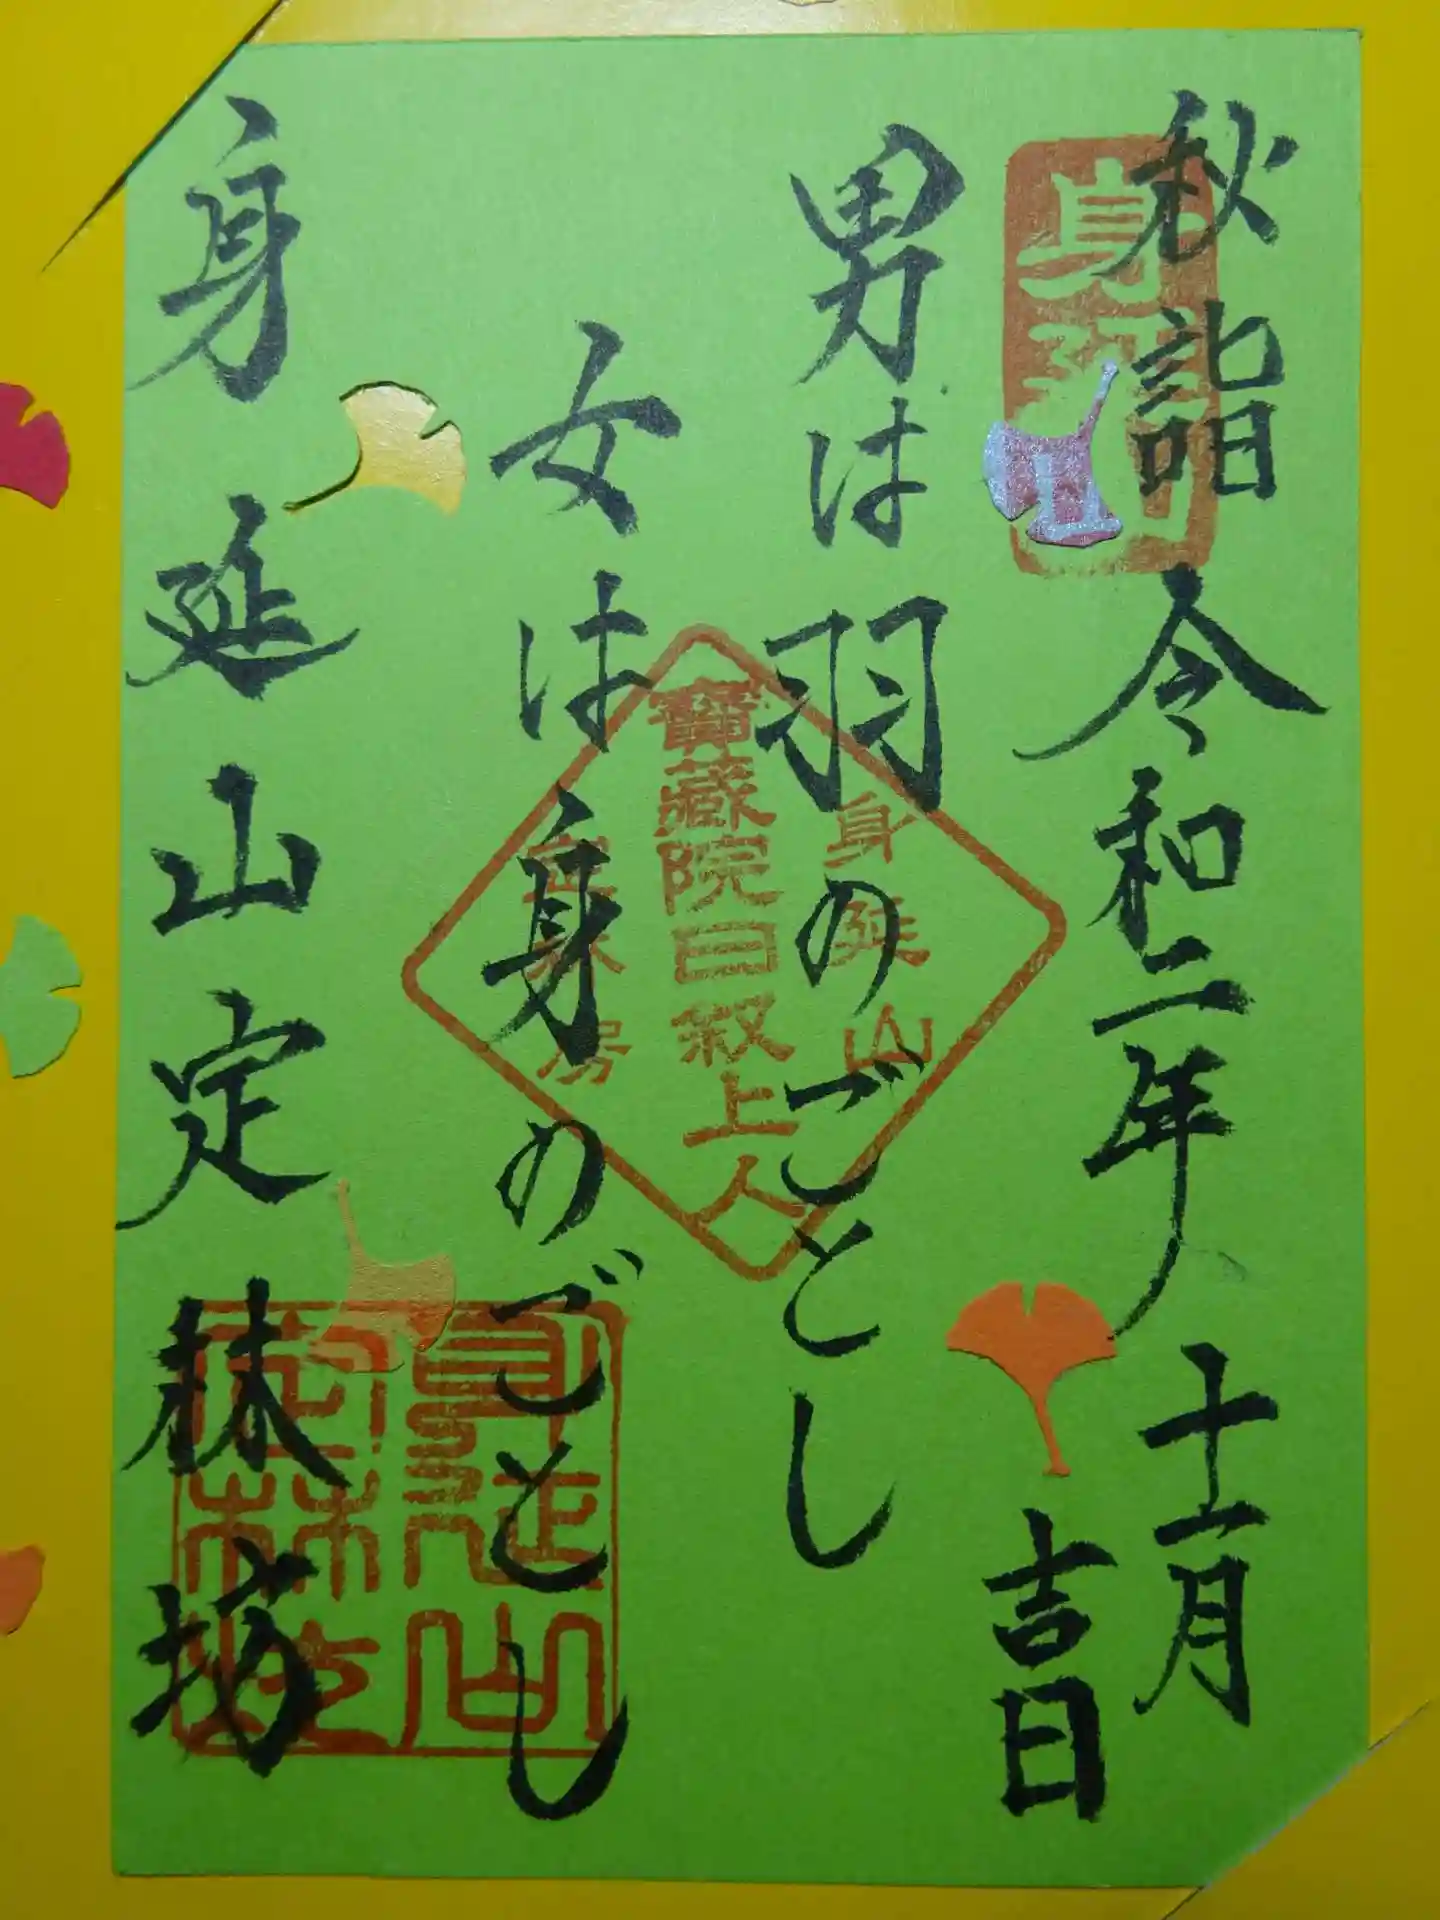 秋詣 令和二年十一月
吉日
男は羽のごとし
女は身のごとし
身延山定林坊
身延山
寶藏院日叙上人
身延山
定林坊